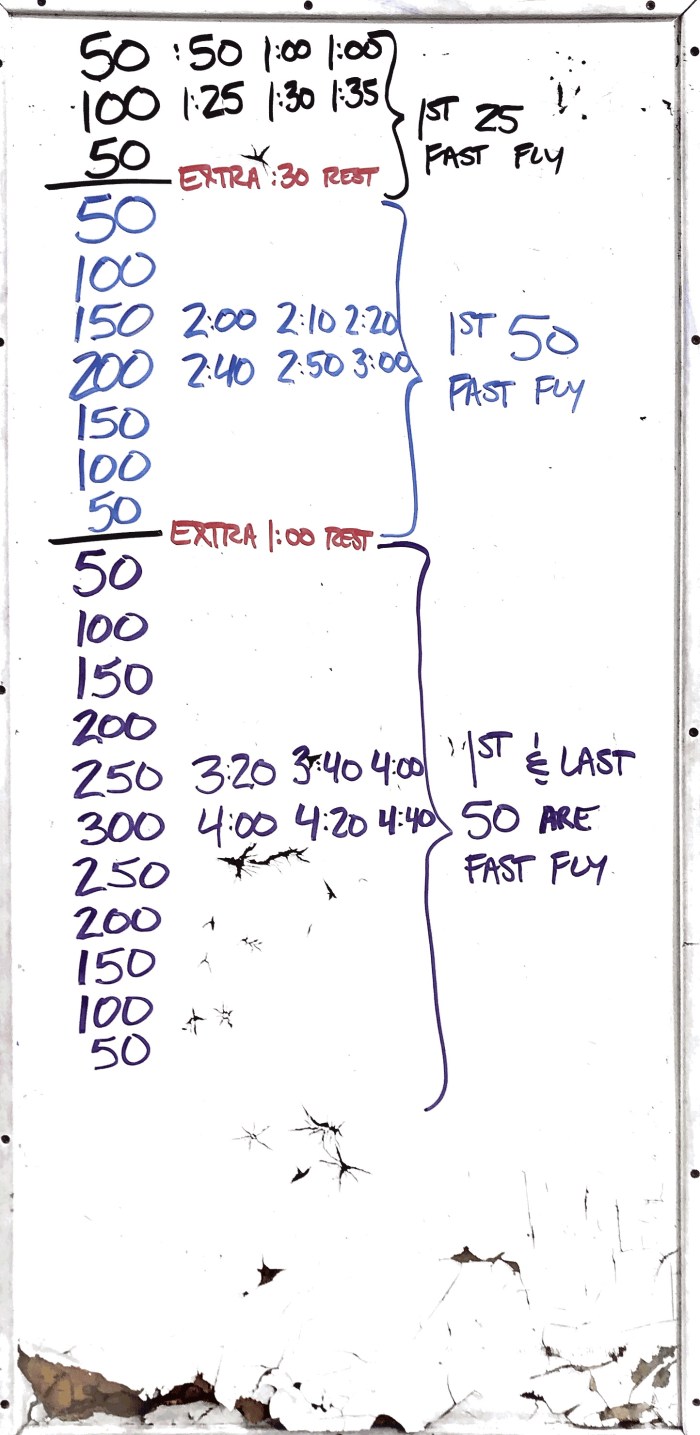 50 :50 1:00 1:00
100 1:25 1:30 1:35
1ST 25
50
FAST FLY
EXTRA :30 REST
50
100
150 2:00 2:10 2:20
1ST 50
200 2:40 2:50 3:00
FAST FLY
150
100
50
EXTRA 1:00 REST
50
100
150
200
250 3:20 3:40 4:00
1ST & LAST
300 4:00 4:20 4:40
50 ARE
250
FAST FLY
200
150
100
50